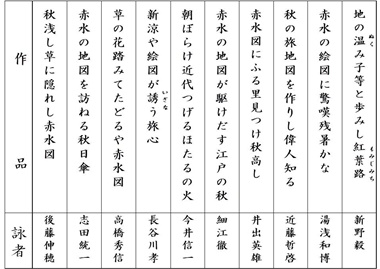 地の温み子等と歩みし紅葉路
ぬく
もみじみち
新野毅
赤水の絵図に驚嘆残暑かな
湯浅和博
秋の旅地図を作りし偉人知る
近藤哲啓
赤水図にふる里見つけ秋高し
井出英雄
赤水の地図が駆けだす江戸の秋
細江徹
朝ぼらけ近代つげるほたるの火
今井信一
新涼や絵図が誘う旅心
いざな
長谷川孝
草の花踏みてたどるや赤水図
高橋秀信
赤水の地図を訪ねる秋日傘
志田統一
秋浅し草に隠れし赤水図
後藤伸穂
作品
詠者